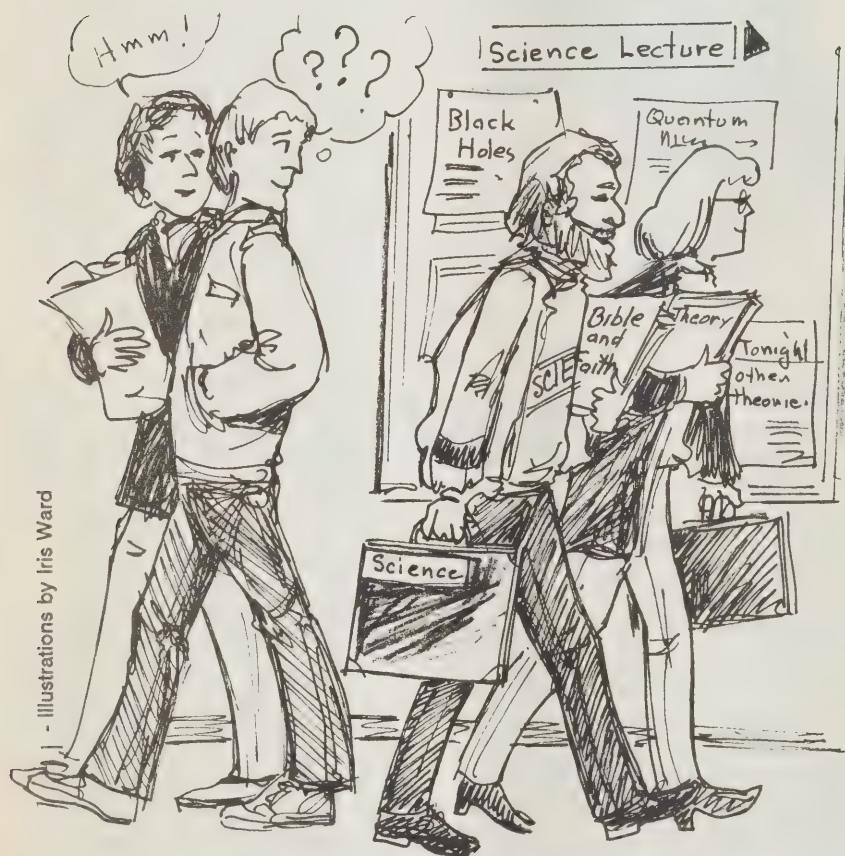 Hmm!
???
Science Lecture
Black
Holes
Quantum
Bible
and
Faith
SCIE
Theory
Tonight
other
theorie.
Science
- Illustrations by Iris Ward